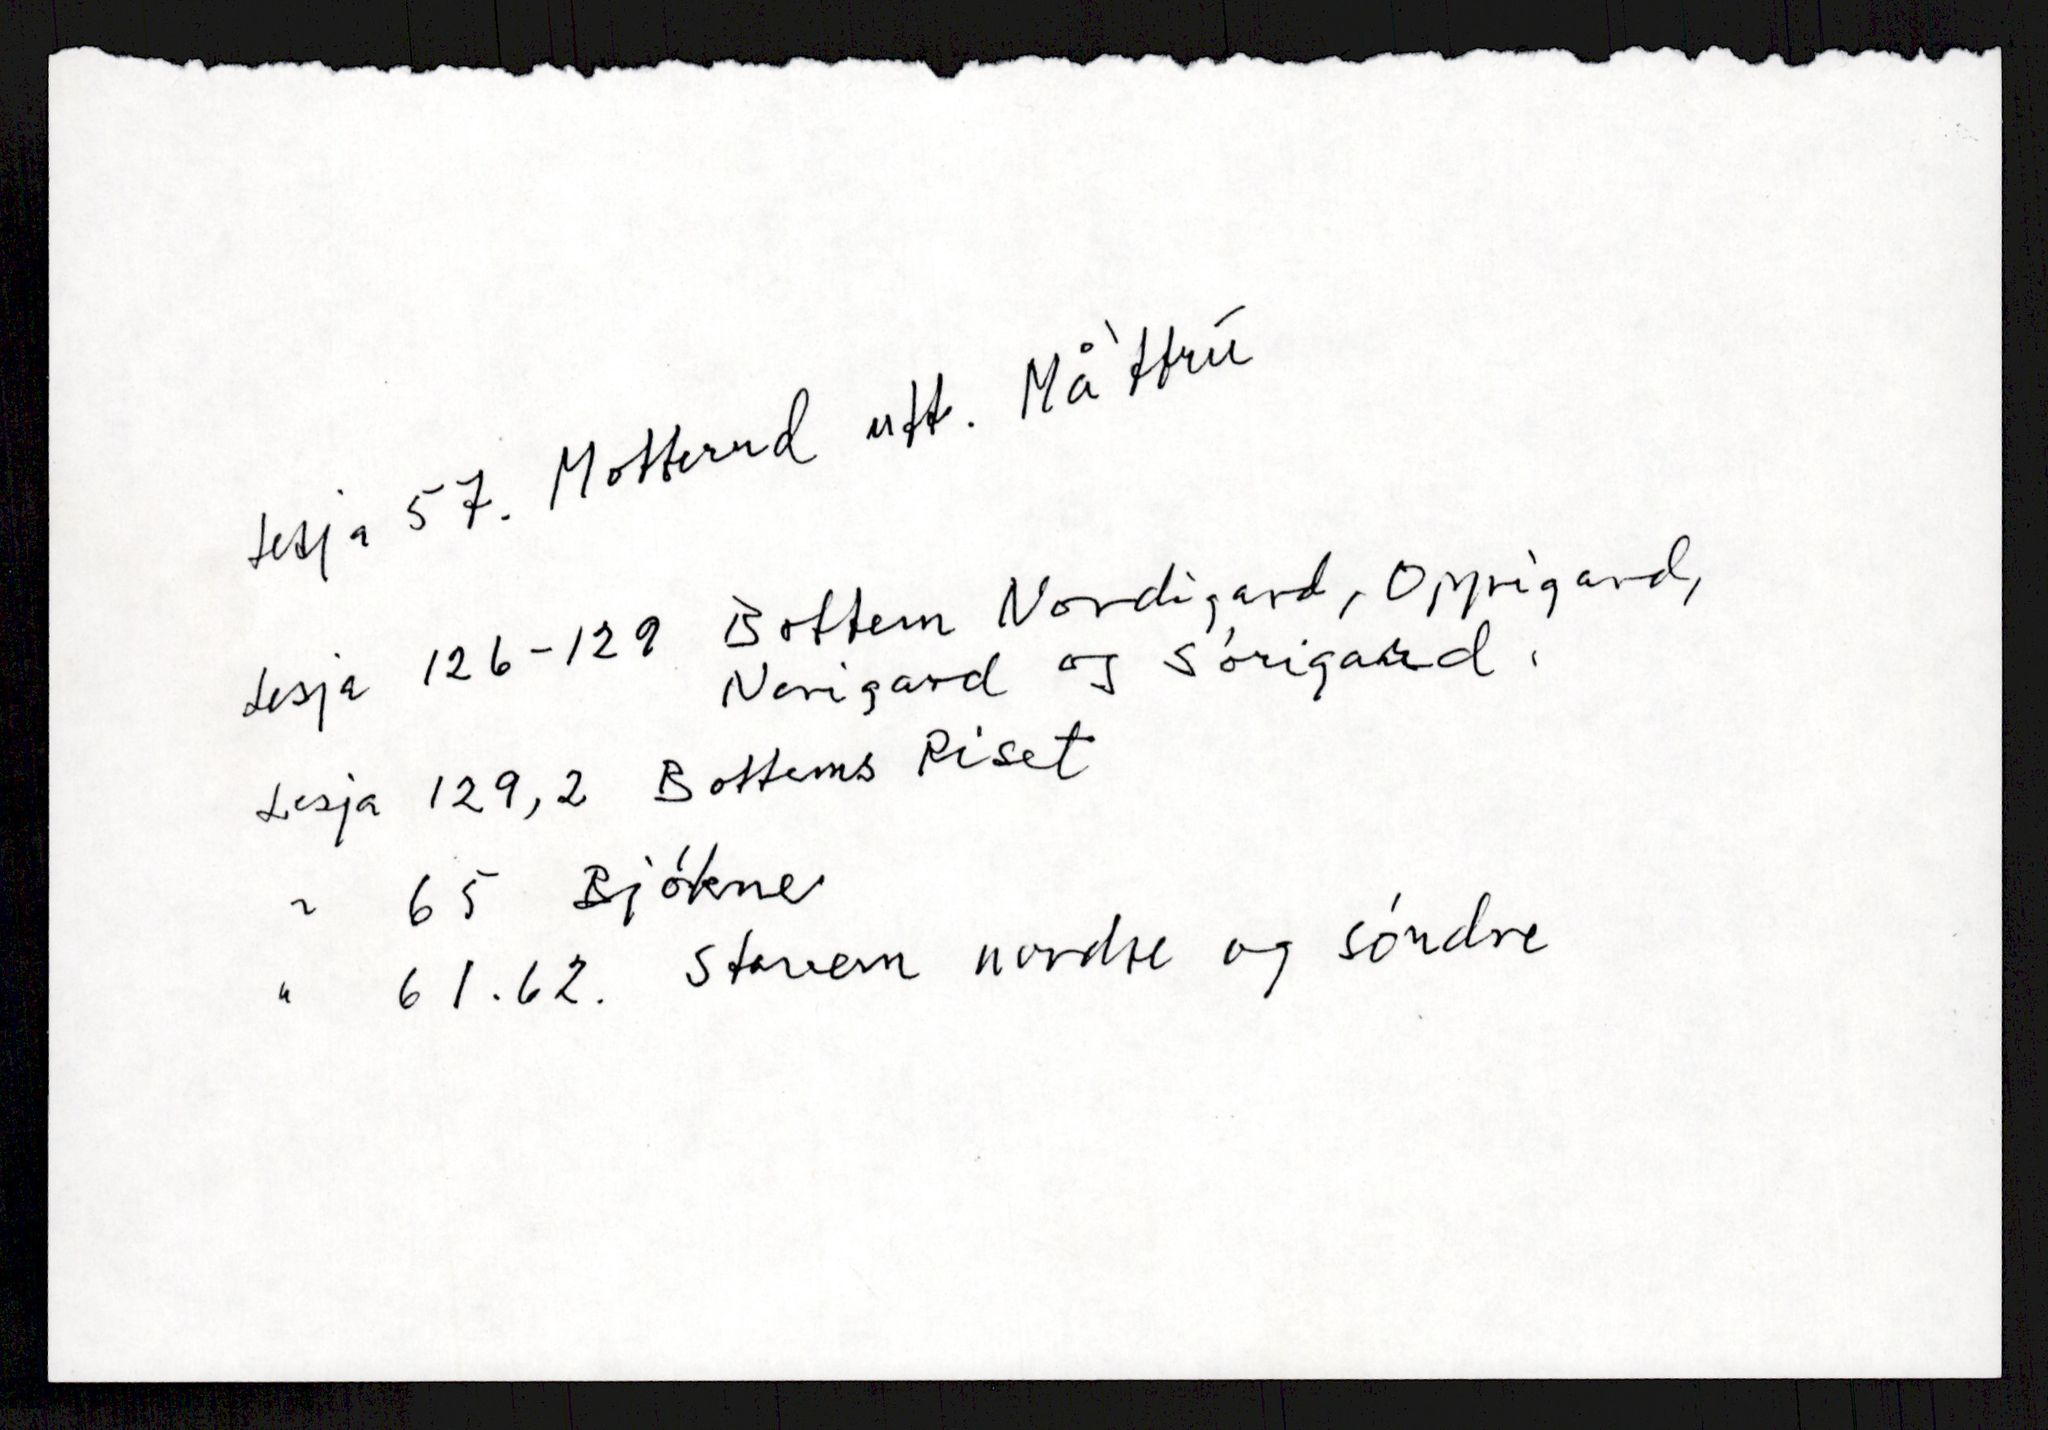 Lesja 57. Motterud utt. Må`ttrú
Lesja 126-129 Bottem Nordigard, Oppigard,
Norigard og Sórigard.
Lesja 129,2 Bottems Riset
" 65 Bjókne
" 61.62. Stavem nordre og sóndre